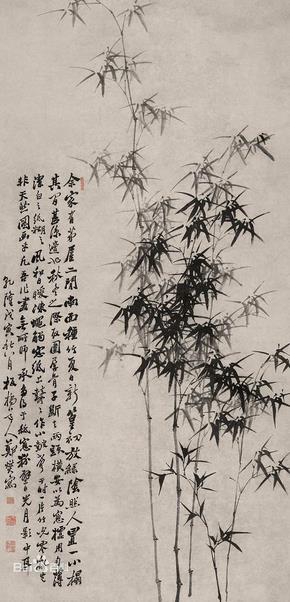 余家有茅屋二間南面種竹夏日新篁初放綠陰照人置一小榻
其中甚涼適也秋冬之際取圍屏骨子斷去兩頭橫安以為窗櫺用勻薄
潔白之紙糊之風和日暖凍蠅觸窗紙上鼕鼕作小鼓聲於時一片竹影零亂豈
非天然圖畫乎凡吾畫竹無所師承多得於紙窗粉壁日光月影中耳
乾隆戊寅 月板橋 鄭燮